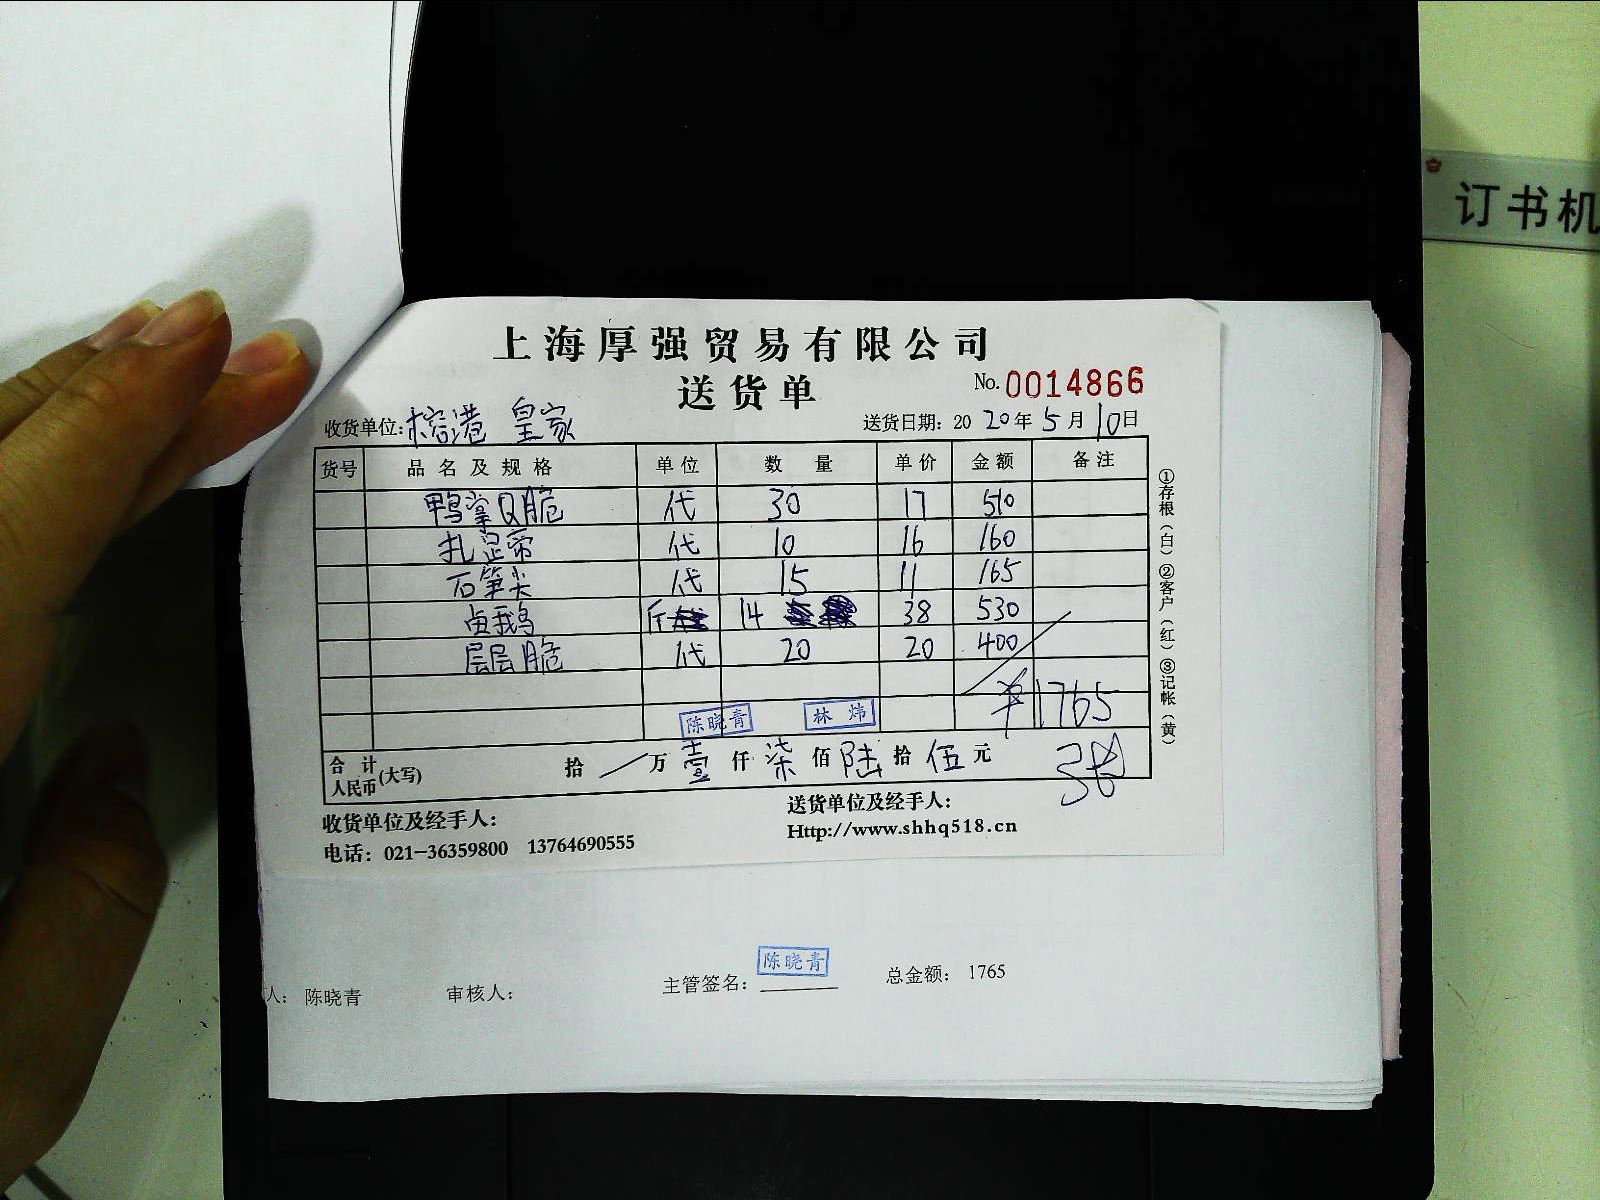 订书机
上海厚强贸易有限公司
送货单
No. 0014866
收货单位: 榕港 皇家
送货日期: 2020年5月10日
货号 品名及规格 单位 数量 单价 金额 备注
鸭掌Q脆 代 30 17 510
扎蹄 代 10 16 160
石笋尖 代 15 11 165
卤鹅 斤 14 38 530
层层脆 代 20 20 400
¥1765
陈晓青 林炜
合计人民币(大写) 拾 / 万 壹 仟 柒 佰 陆 拾 伍 元
收货单位及经手人:
送货单位及经手人:
电话: 021-36359800 13764690555
Http://www.shhq518.cn
①存根(白)②客户(红)③记帐(黄)
人: 陈晓青 审核人: 主管签名: 陈晓青 总金额: 1765